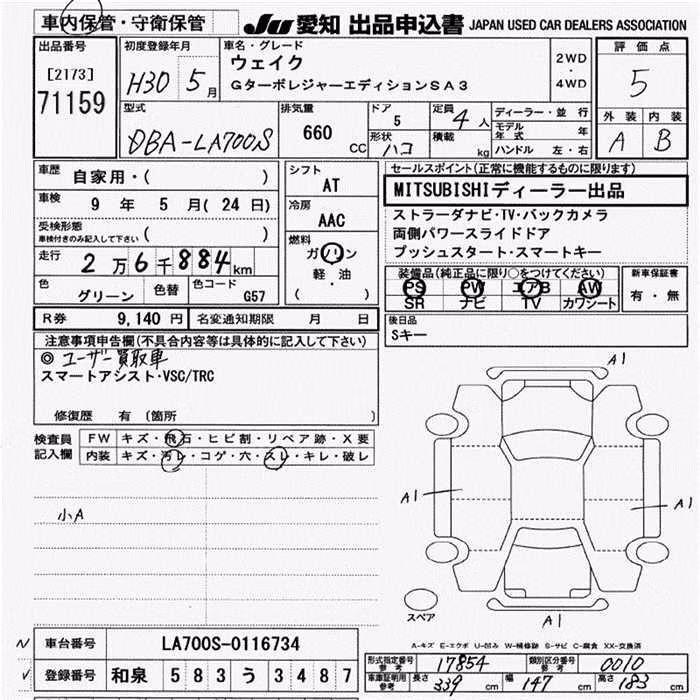 車内保管・守衛保管
JU 愛知 出品申込書 JAPAN USED CAR DEALERS ASSOCIATION
出品番号
[2173]
71159
初度登録年月
H30 5月
車名・グレード
ウェイク
GターボレジャーエディションSA3
2WD
・
4WD
評価点
5
外装 内装
A B
型式
DBA-LA700S
排気量
660 CC
ドア
5
形状
ハコ
定員
4人
積載
kg
ディーラー・並行
モデル年式 年
ハンドル 左・右
車歴 自家用・( )
車検 9 年 5 月( 24 日)
受検形態
車検付きのみ記入して下さい ( )
走行 2万6千884km
色 グリーン
色替
色コード G57
シフト
AT
冷房
AAC
燃料
ガソリン
軽・油
( )
セールスポイント(正常に機能するものに限ります)
MITSUBISHIディーラー出品
ストラーダナビ・TV・バックカメラ
両側パワースライドドア
プッシュスタート・スマートキー
装備品(純正品に限り○をつけてください)
PS PW エアB AW
SR ナビ TV カワシート
新車保証書
有・無
R券 9,140 円
名変通知期限 月 日
後日品
Sキー
注意事項申告欄(不具合内容等は具体的に記入して下さい)
◎ ユーザー買取車
スマートアシスト・VSC/TRC
修復歴 有 (箇所 )
検査員
記入欄
FW キズ・飛石・ヒビ割・リペア跡・X要
内装 キズ・汚レ・コゲ・穴・スレ・キレ・破レ
小A
A1
A1
A1
A1
スペア
A-キズ E-エクボ U-凹み W-補修跡 S-サビ C-腐食 XX-交換済
車台番号 LA700S-0116734
登録番号 和泉 583 う 3487
型式指定番号
参考 17854
類別区分番号
参考 0010
車庫証明用
参考
長さ 339 cm
幅 147 cm
高さ 183 cm